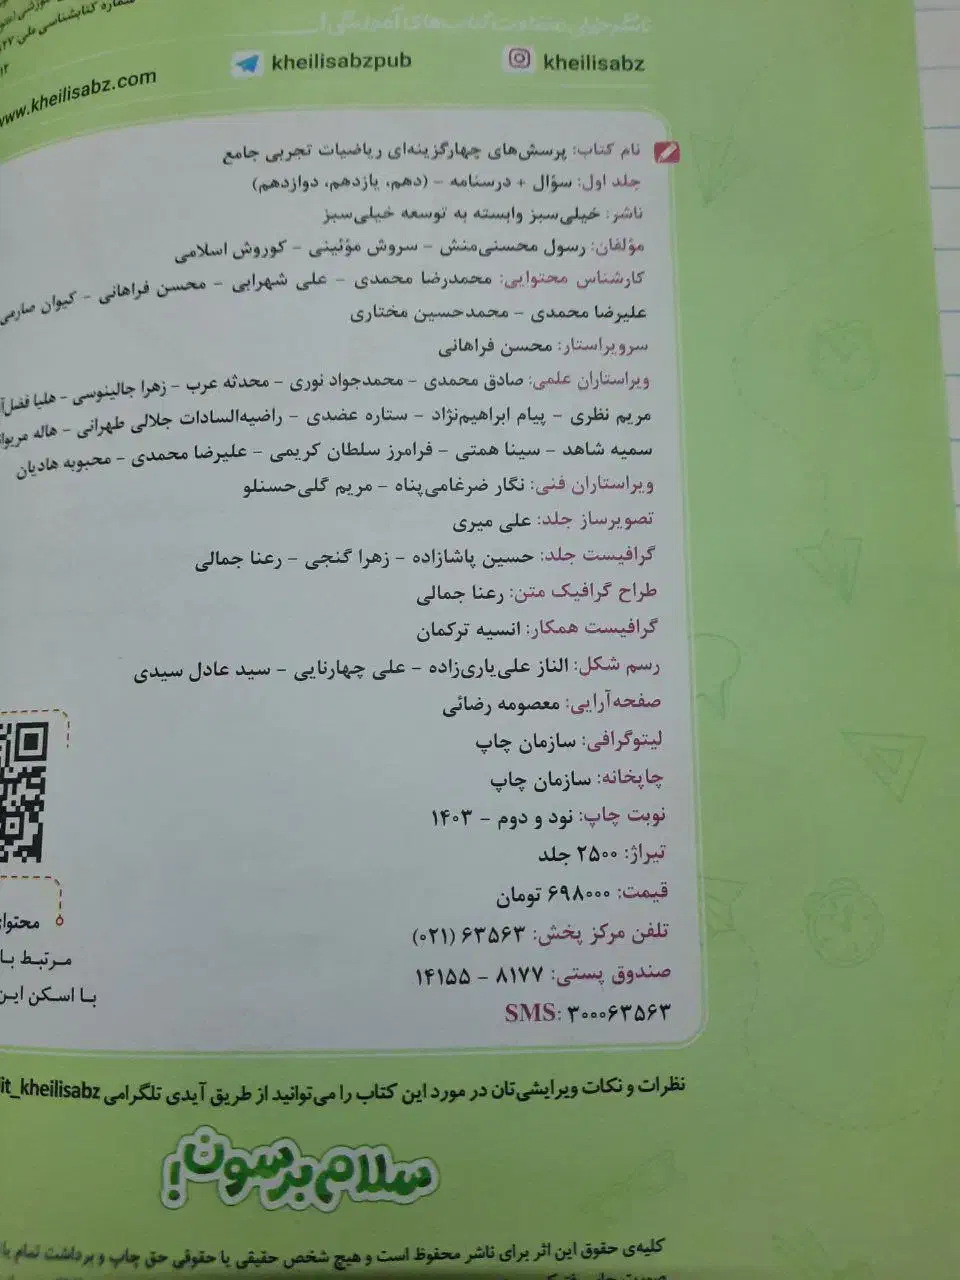 شماره کتابشناسی ملی:
www.kheilisabz.com
kheilisabzpub
kheilisabz
نام کتاب: پرسش‌های چهارگزینه‌ای ریاضیات تجربی جامع
جلد اول: سؤال + درسنامه - (دهم، یازدهم، دوازدهم)
ناشر: خیلی‌سبز وابسته به توسعه خیلی‌سبز
مؤلفان: رسول محسنی‌منش - سروش مؤئینی - کوروش اسلامی
کارشناس محتوایی: محمدرضا محمدی - علی شهرابی - محسن فراهانی - کیوان صارمی
علیرضا محمدی - محمدحسین مختاری
سرویراستار: محسن فراهانی
ویراستاران علمی: صادق محمدی - محمدجواد نوری - محدثه عرب - زهرا جالینوسی - هلیا
مریم نظری - پیام ابراهیم‌نژاد - ستاره عضدی - راضیه‌السادات جلالی طهرانی - هاله
سمیه شاهد - سینا همتی - فرامرز سلطان کریمی - علیرضا محمدی - محبوبه هادیان
ویراستاران فنی: نگار ضرغامی‌پناه - مریم گلی‌حسنلو
تصویرساز جلد: علی میری
گرافیست جلد: حسین پاشازاده - زهرا گنجی - رعنا جمالی
طراح گرافیک متن: رعنا جمالی
گرافیست همکار: انسیه ترکمان
رسم شکل: الناز علی‌یاری‌زاده - علی چهارنایی - سید عادل سیدی
صفحه‌آرایی: معصومه رضائی
لیتوگرافی: سازمان چاپ
چاپخانه: سازمان چاپ
نوبت چاپ: نود و دوم - ۱۴۰۳
تیراژ: ۲۵۰۰ جلد
قیمت: ۶۹۸۰۰۰ تومان
تلفن مرکز پخش: ۶۳۵۶۳ (۰۲۱)
صندوق پستی: ۸۱۷۷ - ۱۴۱۵۵
SMS: ۳۰۰۰۶۳۵۶۳
مرتبط با
با اسکن این
نظرات و نکات ویرایشی‌تان در مورد این کتاب را می‌توانید از طریق آیدی تلگرامی it_kheilisabz
سلام برسون!
کلیه‌ی حقوق این اثر برای ناشر محفوظ است و هیچ شخص حقیقی یا حقوقی حق چاپ و برداشت تمام یا